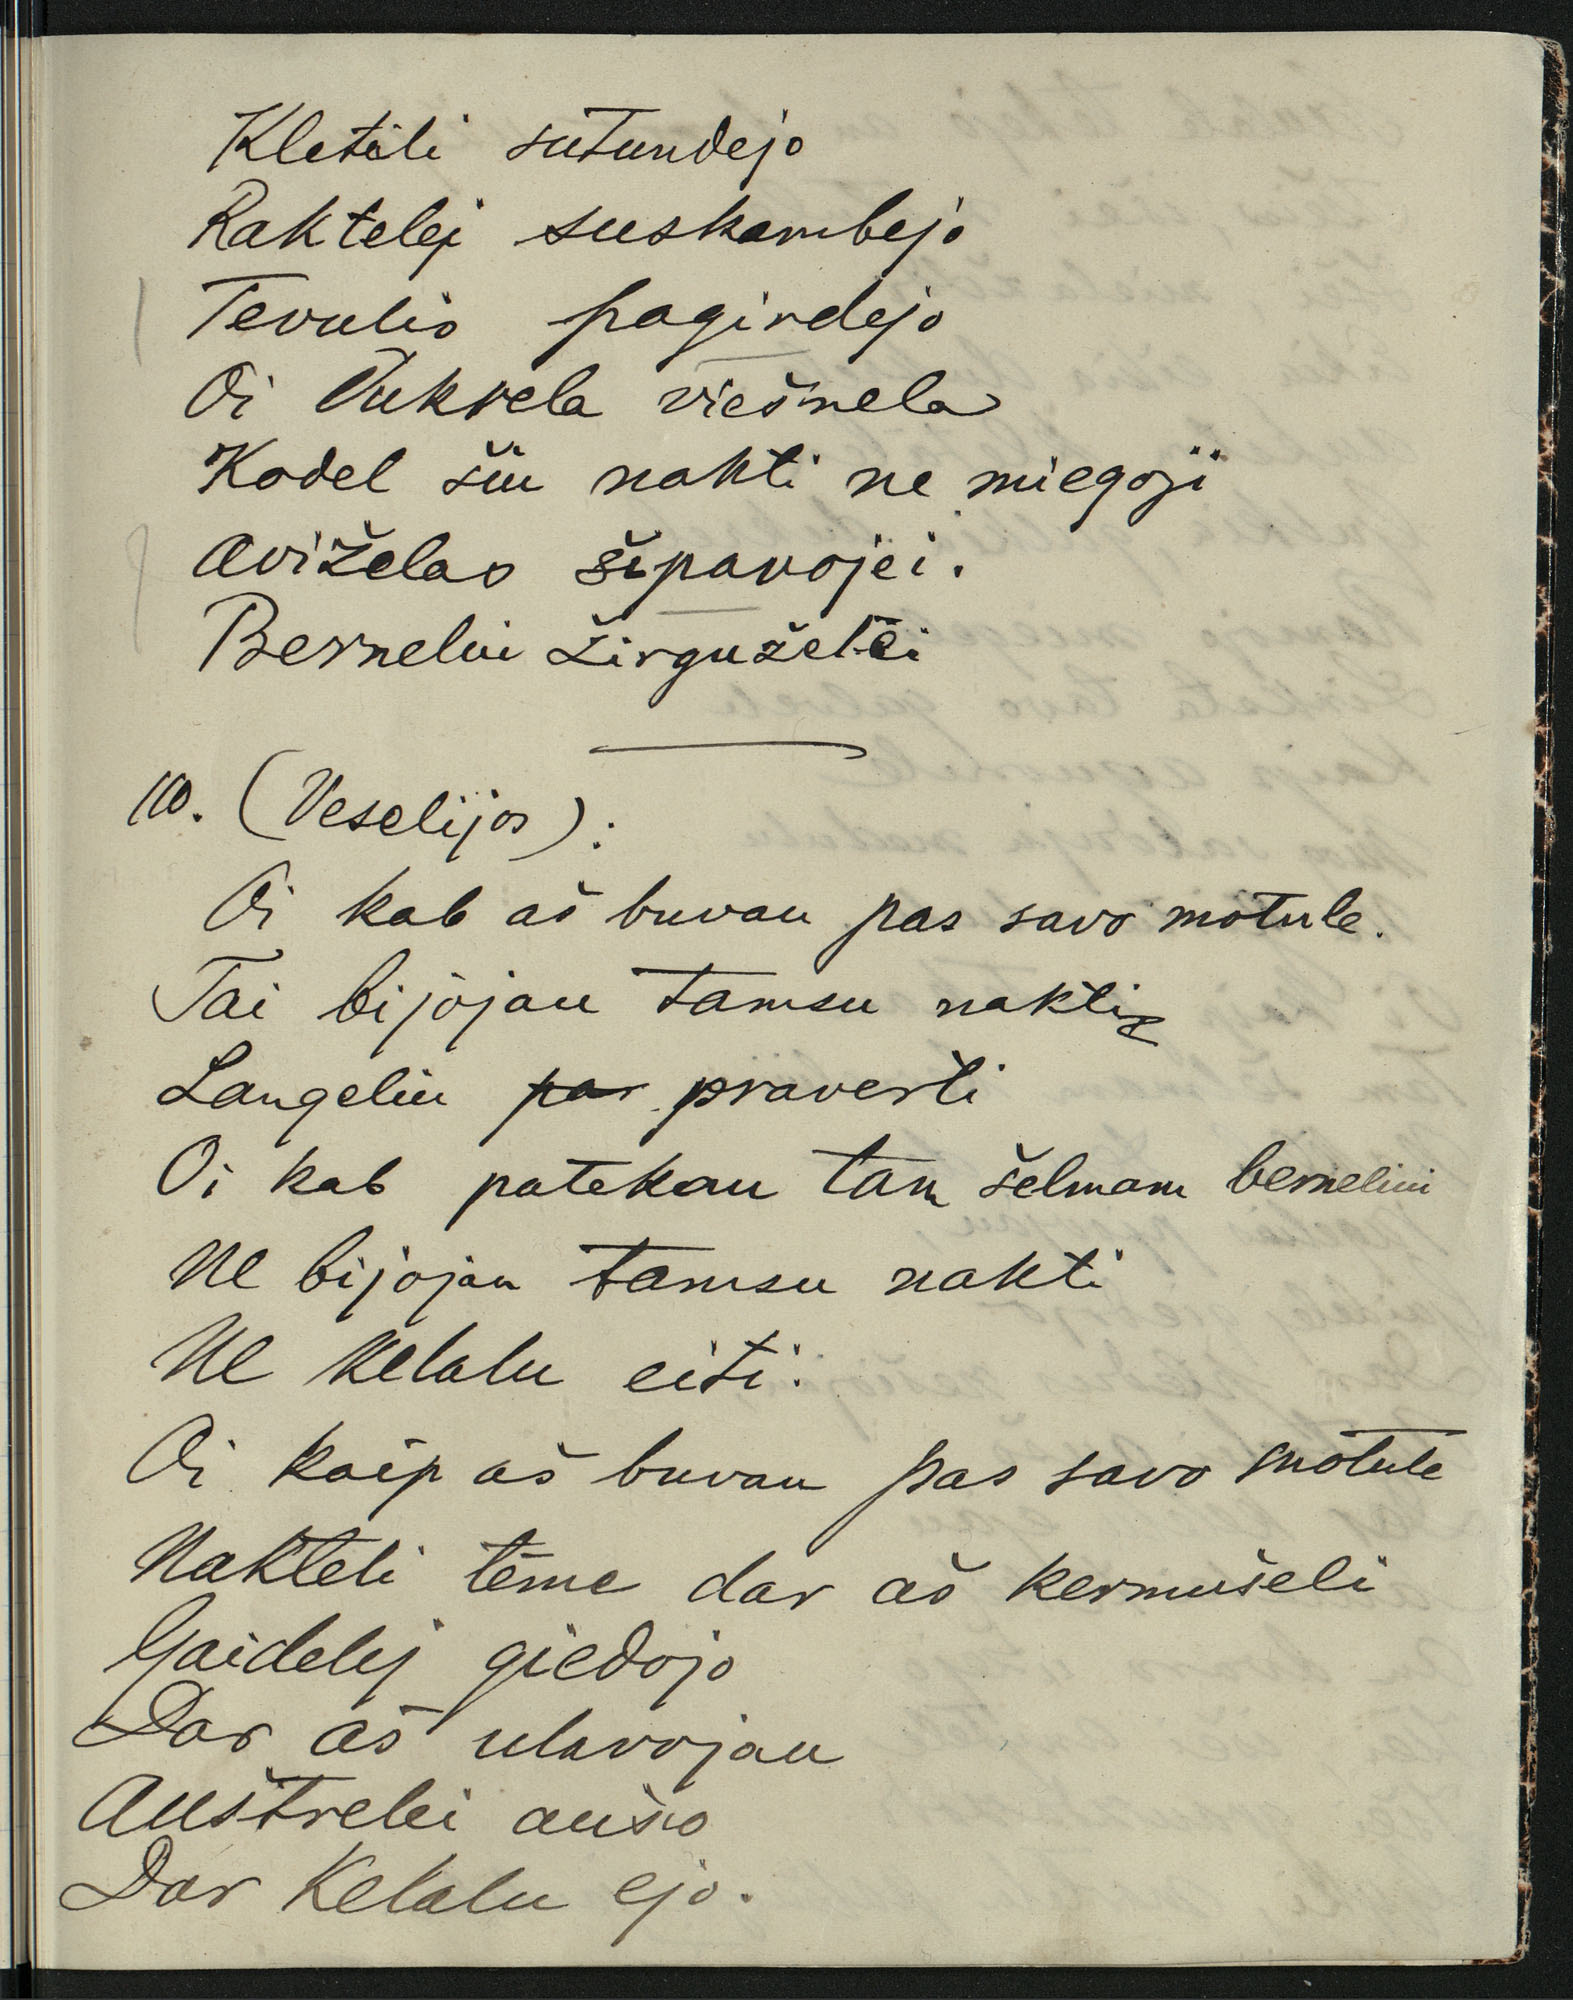 Kletili sutundejo
Raktelej suskambejo
Tevulis pagirdejo
Oi Dukrela viešnela
Kodel šiu nakti ne miegoji
Aviželas šipavojei.
Berneliu žirguželei
110. (Veselijos):
Oi kab aš buvau pas savo motule.
Tai bijojau tamsu nakti
Langeliu par praverti
Oi kab patekau tam šelmam berneliui
Ne bijojau tamsu nakti
Ne kelalu eiti.
Oi kaip aš buvau pas savo motule
Nakteli teme dar aš kermušeli
Gaidelej giedojo
Dar aš ulavojau
Auštrelei aušo
Dar Kelalu ejo.